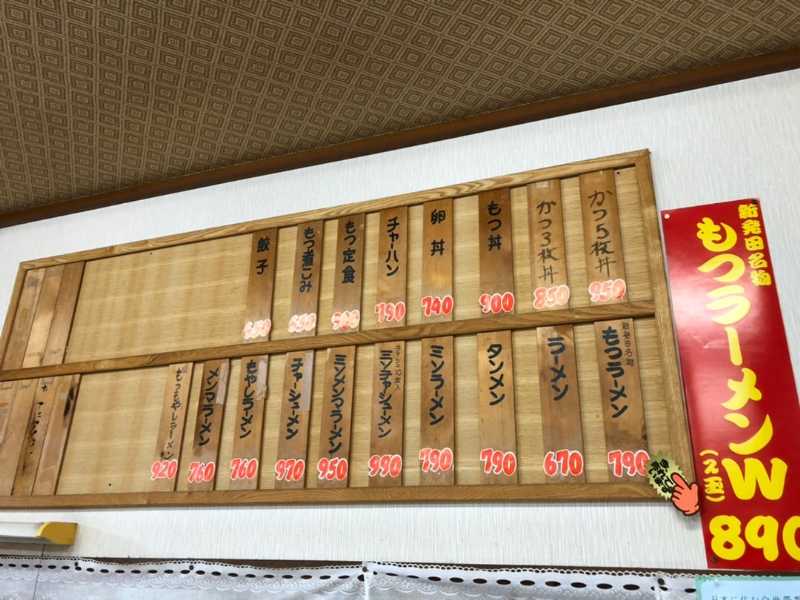 かつ5枚丼
850
かつ3枚丼
850
もつ丼
900
卵丼
740
チャーハン
790
もつ定食
もつ煮こみ
餃子
もつラーメン
790
ラーメン
670
タンメン
790
ミソラーメン
790
ミソチャシューメン
990
ミソメンマラーメン
950
チャーシューメン
970
もやしラーメン
760
メンマラーメン
760
もつもやしラーメン
920
新発田名物
もつラーメンW
(2玉)
890